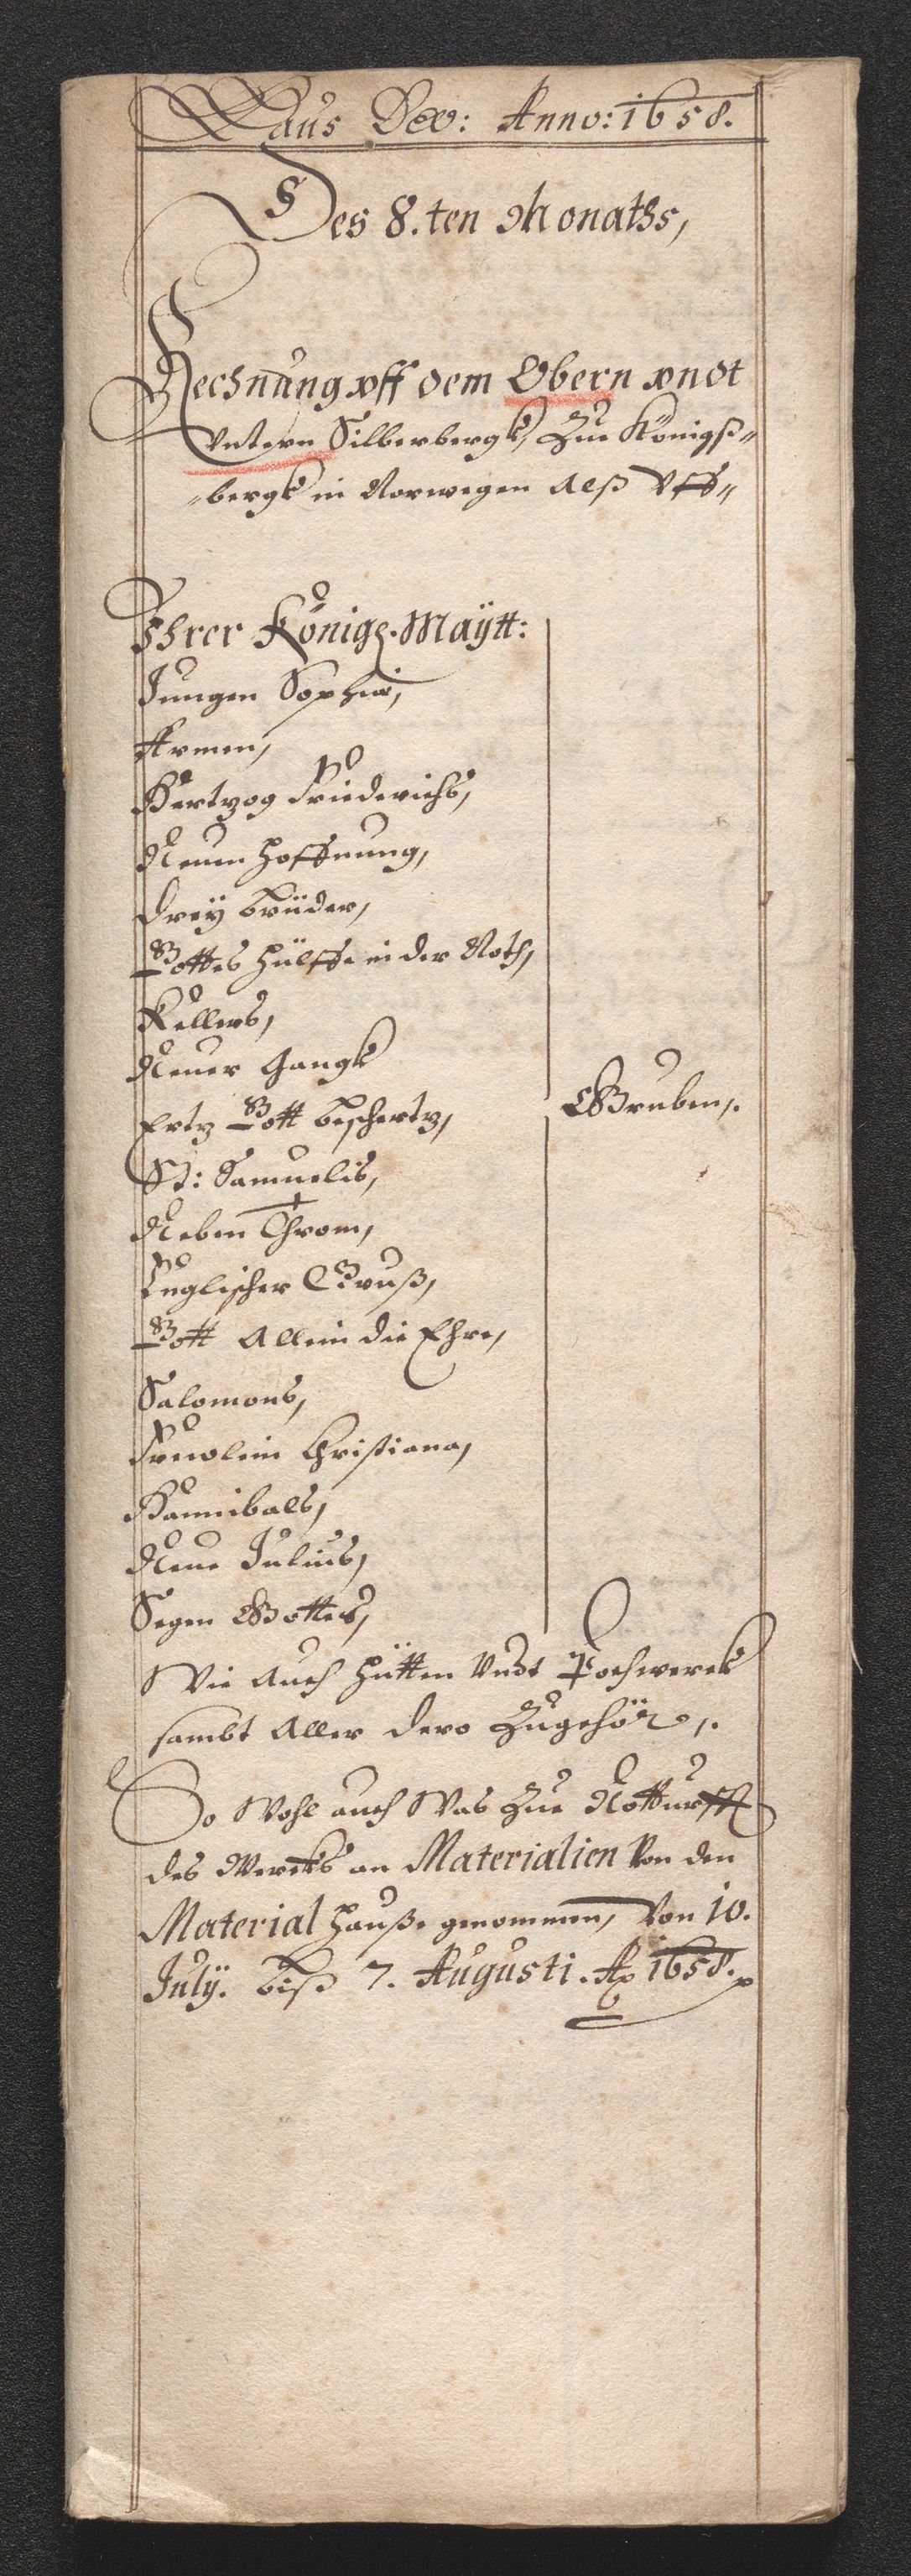 Laus Deo: Anno: 1658.
Des 8.ten Monaths,
Rechnung vff dem Obern vndt
Vntern Silberbergk, Zue Königß„
„bergk in Norwegen Alß Vff„
Ihrer Königl. Maÿtt:
Jungen Sophia,
Armen,
Hertzog Friederichs,
Neuen Hoffnung,
Dreÿ brüder,
Gottes Hülffe in der Noth,
Kellers,
Neuer Gangk
Ertz Gott beschertz,
Gruben,.
St: Samuelis,
Neben Throm,
Englischer Gruß,
Gott Allein die Ehre,
Salomons,
Freulein Christiana,
Hannibals,
Neue Julius,
Segen Gottes,
Wie Auch Hütten Vndt Pochwerck
sambt Aller dero Zugehör,.
So Wohl auch Was Zue Notturfft
des Wercks an Materialien Von den
Material Hauße genommen, Von 10.
Julÿ. biß 7. Augusti. Ao 1658.